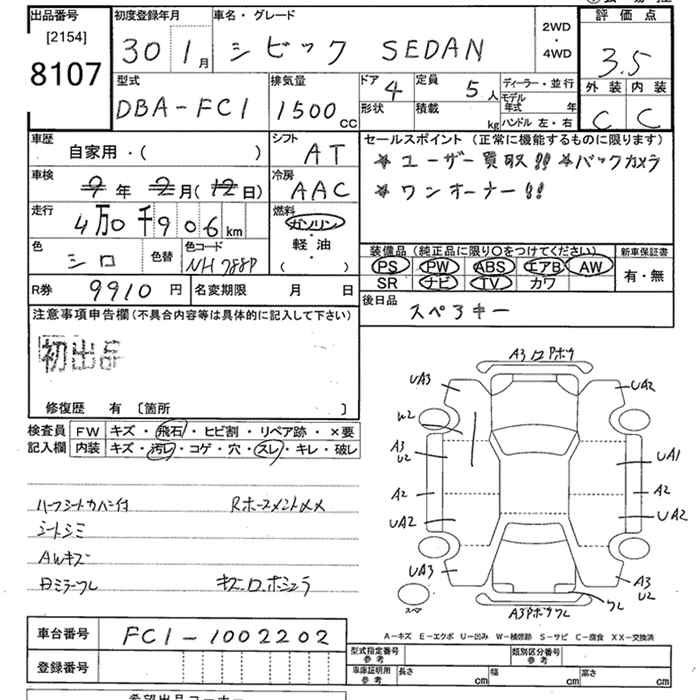 出品番号
[2154]
8107
初度登録年月
30 1月
車名・グレード
シビック SEDAN
2WD
・
4WD
評価点
3.5
外装 内装
C C
型式
DBA-FC1
排気量
1500cc
ドア 4
定員 5人
形状
積載 kg
ディーラー・並行
モデル年式 年
ハンドル 左・右
車歴
自家用・( )
シフト
AT
車検
9年 2月(12日)
冷房
AAC
走行
4万0千906km
燃料
ガソリン
・
軽・油
( )
色
シロ
色替
色コード
NH788P
R券 9910円
名変期限 月 日
セールスポイント (正常に機能するものに限ります)
* ユーザー買取!! *バックカメラ
* ワンオーナー!!
装備品(純正品に限り○をつけてください)
PS PW ABS エアB AW
SR ナビ TV カワ
新車保証書
有・無
後日品
スペアキー
注意事項申告欄(不具合内容等は具体的に記入して下さい)
初出品
修復歴 有 〔箇所 〕
検査員
記入欄
FW キズ・飛石・ヒビ割・リペア跡・×要
内装 キズ・汚レ・コゲ・穴・スレ・キレ・破レ
ハーフシートカバー付
シートシミ
AWキズ
Rホースメントメメ
キズ.ロ.ホシュラ
A3
UA3
UA2
W2
A3
U2
UA1
A2
A2
UA2
UA2
UA3
A3
U2
スペア
ワレ
A-キズ E-エクボ U-凹み W-補修跡 S-サビ C-腐食 XX-交換済
車台番号
FC1-1002202
登録番号
型式指定番号
参考
類別区分番号
参考
車庫証明用
参考
長さ cm
幅 cm
高さ cm
希望出品コーナー